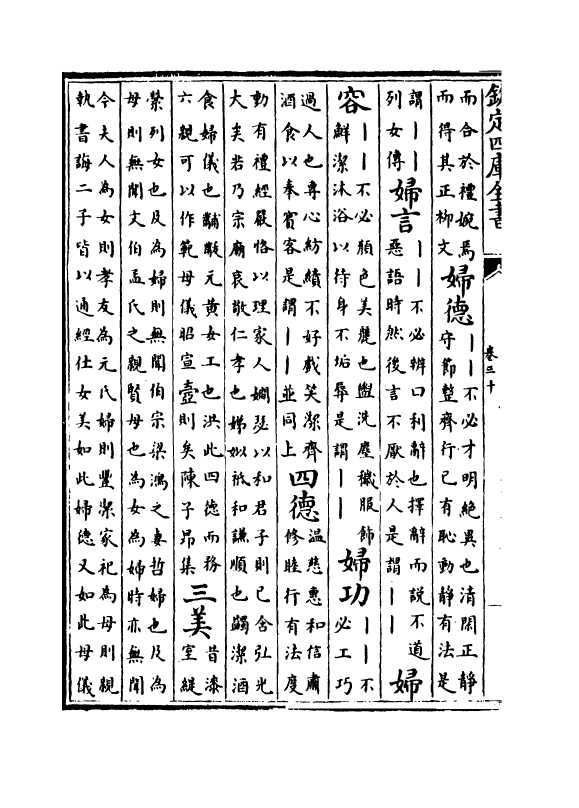 欽定四庫全書 卷三十
而合於禮婉焉
而得其正柳文
婦德
丨丨不必才明絕異也清閑正静
守節整齊行已有恥動静有法是
謂丨丨
列女傳
婦言
丨丨不必辨口利辭也擇辭而説不道
惡語時然後言不厭於人是謂丨丨
婦
容
丨丨不必顔色美麗也盥洗塵穢服飾
鮮潔沐浴以待身不垢辱是謂丨丨
婦功
丨丨不
必工巧
過人也專心紡績不好戲笑潔齊
酒食以奉賓客是謂丨丨並同上
四德
溫慈惠和信肅
修睦行有法度
動有禮經嚴恪以理家人嫺瑟以和君子則已含弘光
大矣若乃宗廟哀敬仁孝也娣姒祗和謙順也蠲潔酒
食婦儀也黼黻元黄女工也洪此四德而務
六親可以作範母儀昭宣壼則矣陳子昂集
三美
昔漆
室緹
縈列女也及為婦則無聞伯宗梁鴻之妻哲婦也及為
母則無聞文伯孟氏之親賢母也為女為婦時亦無聞
今夫人為女則孝友為元氏婦則豐潔家祀為母則親
執書誨二子皆以通經仕女美如此婦德又如此母儀